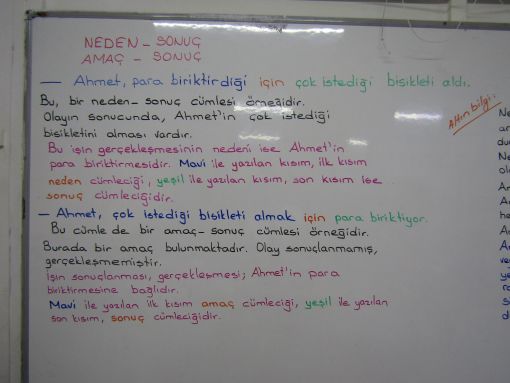 NEDEN - SONUÇ
AMAÇ - SONUÇ
— Ahmet, para biriktirdiği için çok istediği bisikleti aldı.
Bu, bir neden-sonuç cümlesi örneğidir.
Olayın sonucunda, Ahmet'in çok istediği
bisikletini alması vardır.
Bu işin gerçekleşmesinin nedeni ise Ahmet'in
para biriktirmesidir. Mavi ile yazılan kısım, ilk kısım
neden cümleciği, yeşil ile yazılan kısım, son kısım ise
sonuç cümleciğidir.
— Ahmet, çok istediği bisikleti almak için para biriktiyor.
Bu cümle de bir amaç-sonuç cümlesi örneğidir.
Burada bir amaç bulunmaktadır. Olay sonuçlanmamış,
gerçekleşmemiştir.
İşin sonuçlanması, gerçekleşmesi; Ahmet'in para
biriktirmesine bağlıdır.
Mavi ile yazılan ilk kısım amaç cümleciği, yeşil ile yazılan
son kısım, sonuç cümleciğidir.
Altın bilgi: